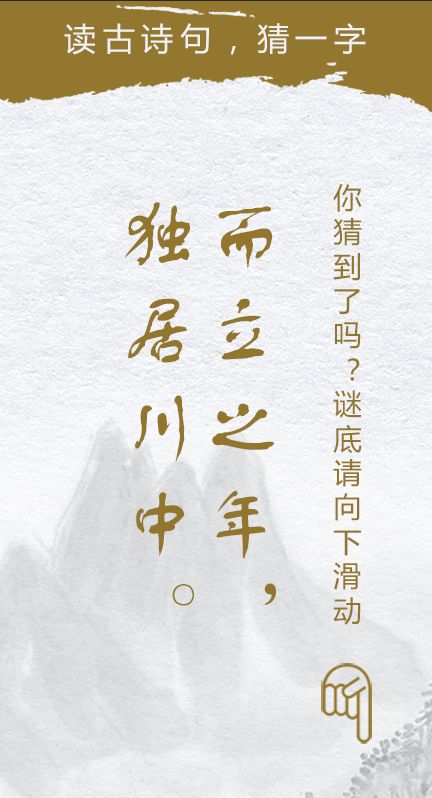 读古诗句，猜一字
你猜到了吗？谜底请向下滑动
而立之年，
独居川中。